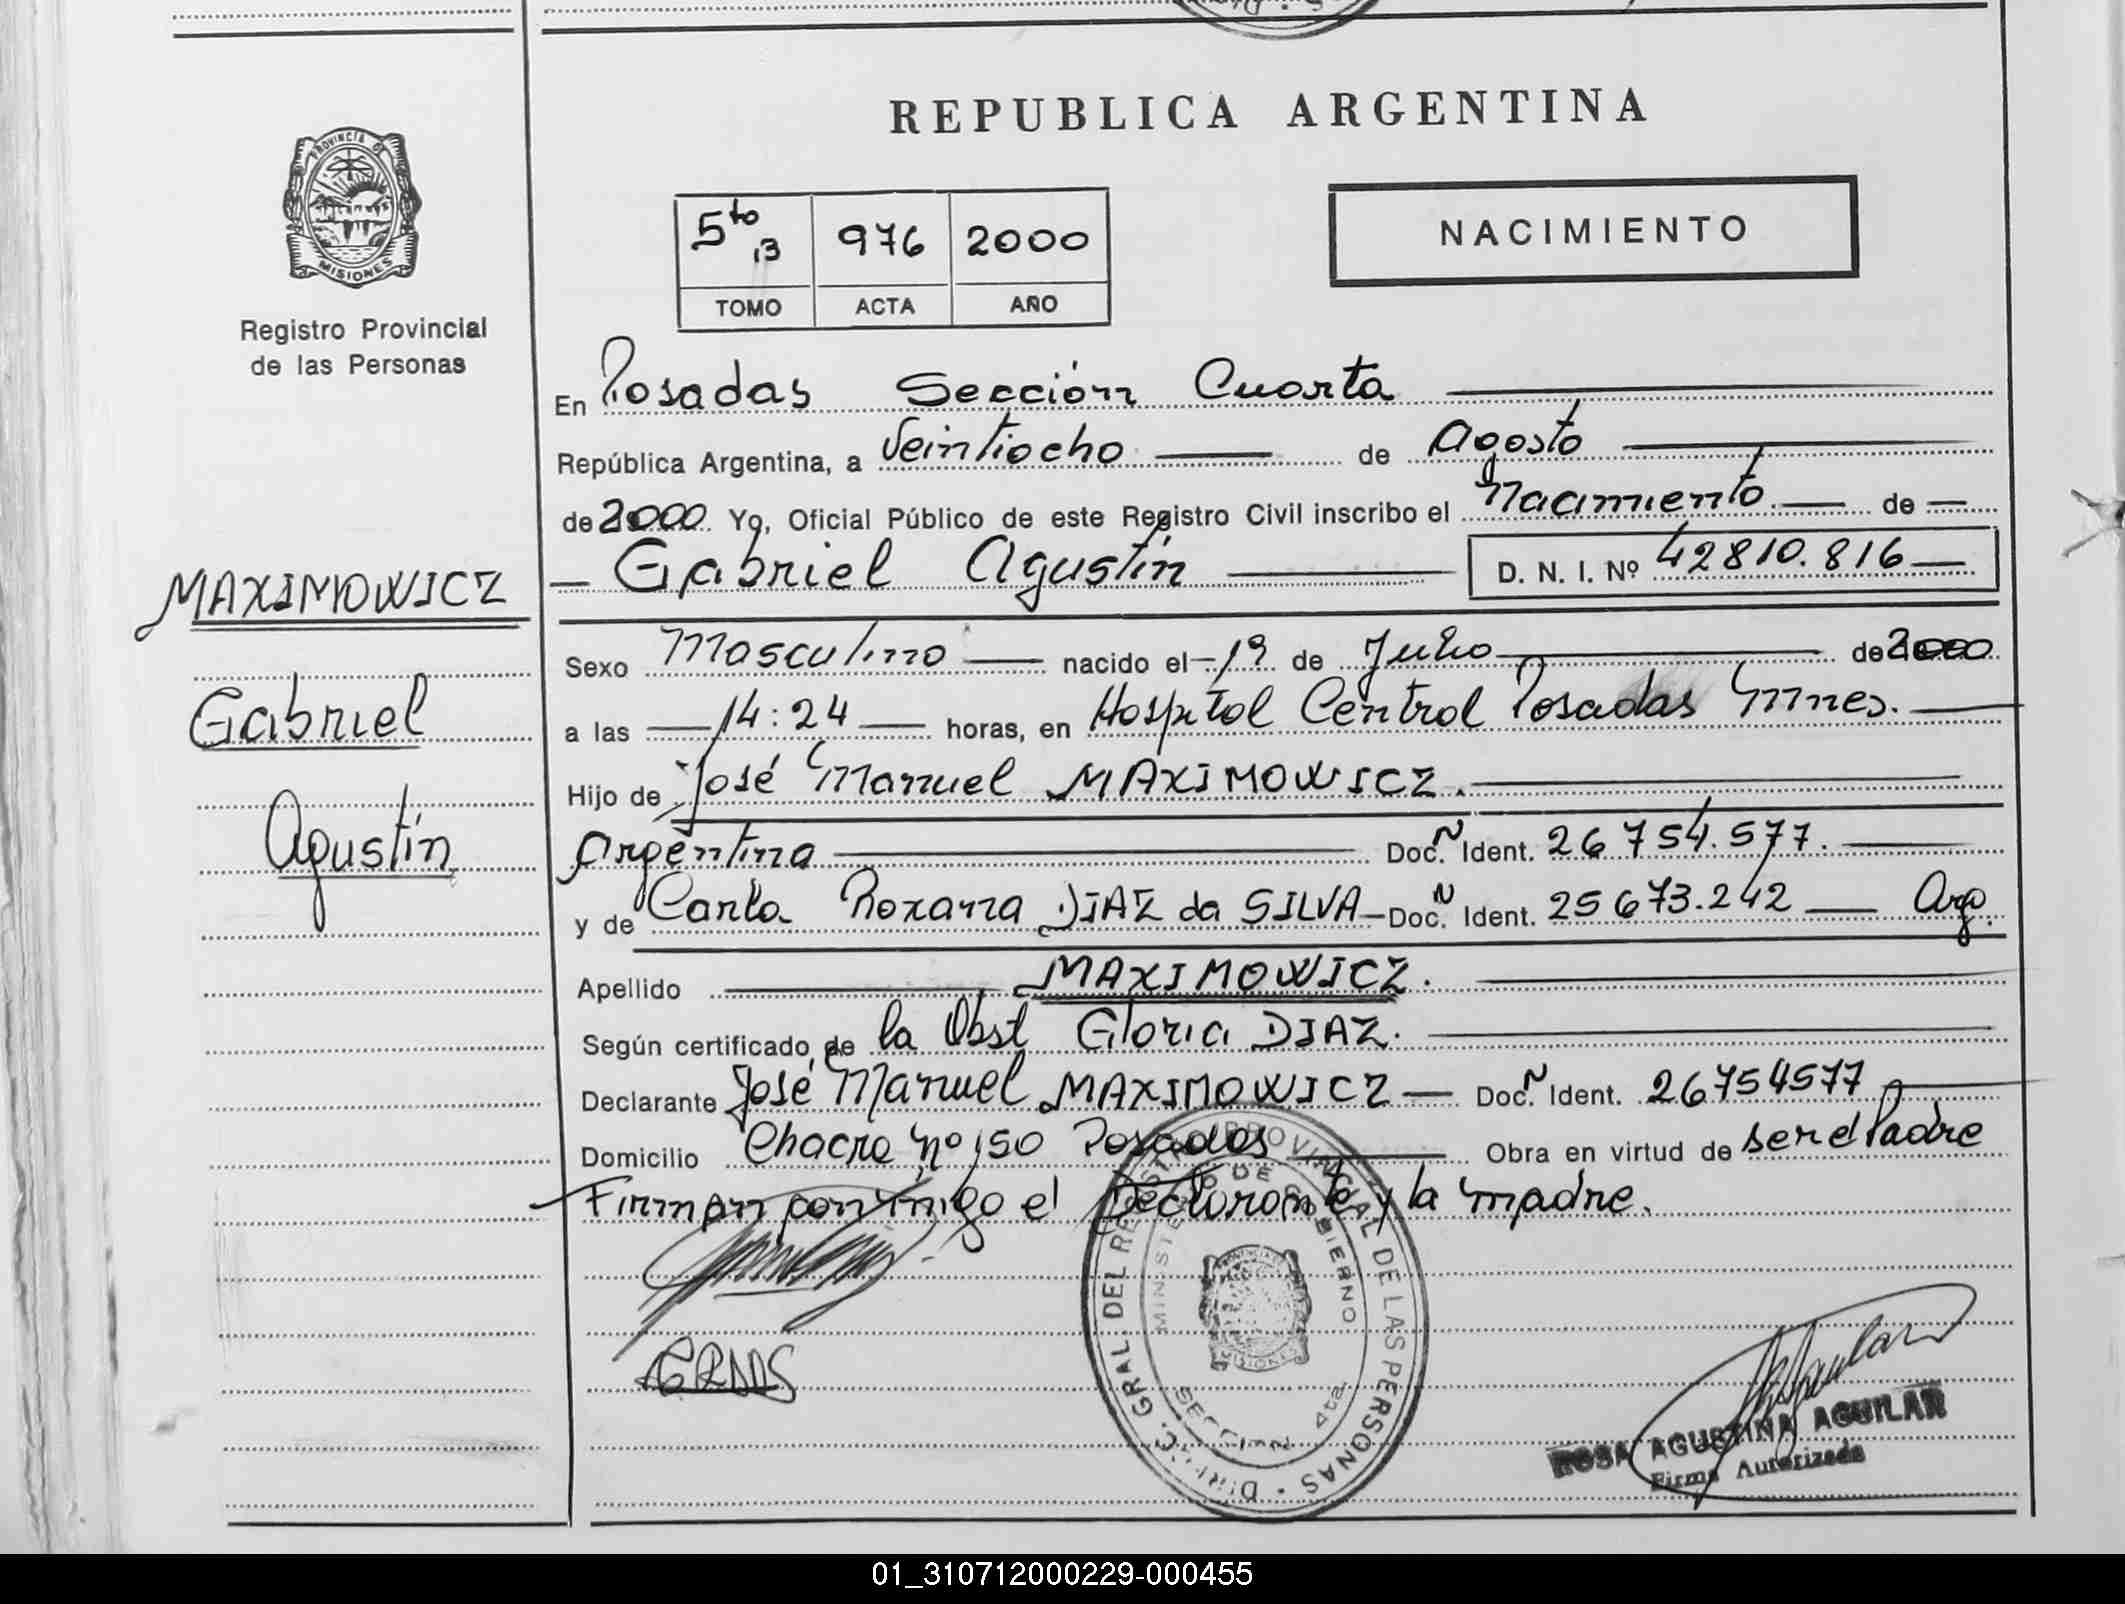 PROVINCIA DE
MISIONES
Registro Provincial
de las Personas
MAXIMOWICZ
Gabriel
Agustín
REPUBLICA ARGENTINA
5to 13 976 2000
TOMO ACTA AÑO
NACIMIENTO
En Posadas Sección Cuarta
República Argentina, a Veintiocho de Agosto
de 2000 Yo, Oficial Público de este Registro Civil inscribo el Nacimiento de
Gabriel Agustín D. N. I. Nº 42810.816
Sexo Masculino nacido el 19 de Julio de 2000
a las 14:24 horas, en Hospital Central Posadas Mnes.
Hijo de José Manuel MAXIMOWICZ.
Argentina Doc. N Ident. 26754.577.
y de Carla Roxana DIAZ da SILVA Doc. N Ident. 25673.242 Arg.
Apellido MAXIMOWICZ.
Según certificado de la Obst Gloria DIAZ.
Declarante José Manuel MAXIMOWICZ Doc. N Ident. 26754577
Domicilio Chacra nº 150 Posadas Obra en virtud de ser el Padre
Firman conmigo el Declarante y la madre.
DIREC. GRAL DEL REGISTRO PROVINCIAL DE LAS PERSONAS
MINISTERIO DE GOBIERNO
MISIONES
SECCION 4ta
ROSA AGUSTINA AGUILAR
Firma Autorizada
01_310712000229-000455